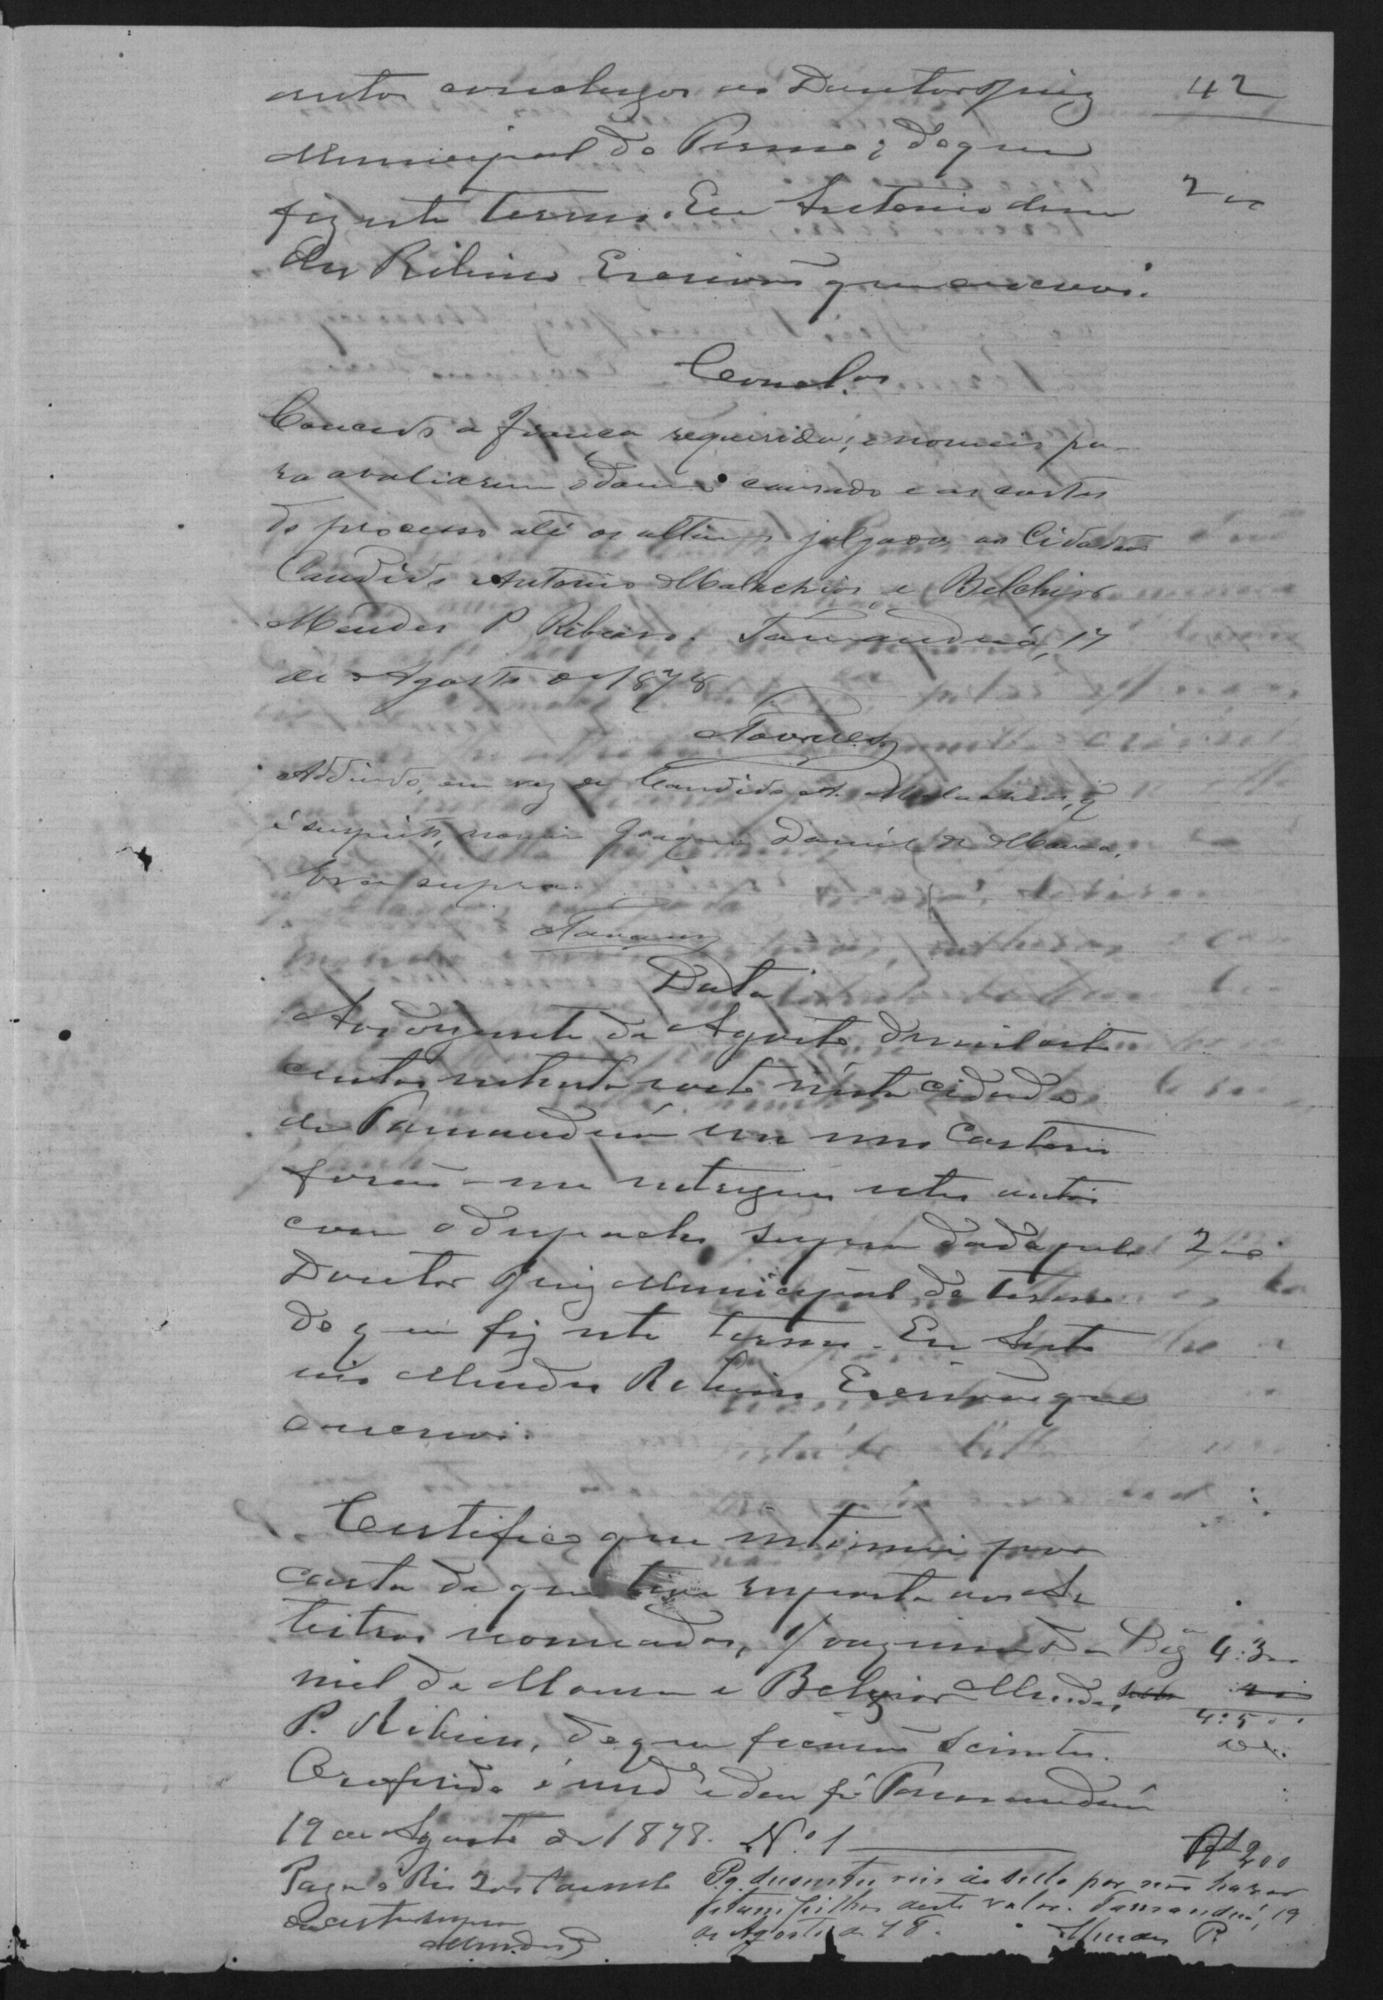 autos conclusos ao Doutor Juiz
42
Municipal do Termo; do que
fiz este termo. Eu Antonio Men
200
des Ribeiro Escrivão que escrevi.
Concl.os
Concedo a fiança requerida; e nomeio pa-
ra avaliarem o damno causado e as custas
do processo até os ultimos julgados aos Cidadãos
Candido Antonio Malachias e Belchior
Mendes P Ribeiro. Tamanduá, 17
de Agosto de 1878
Tavares
Addindo, em vez de Candido A. Malachias, q
é suspeito, nomeio Joaquim Daniel de Moura.
Era supra.
Tavares
Data
Aos dezesete de Agosto de mil oito
centos setenta e oito n'esta cidade
de Tamanduá em meu Cartorio
forão-me entregues estes autos
com o despacho supra dado pelo
200
Doutor Juiz Municipal do termo
do que fiz este termo. Eu Anto
nio Mendes Ribeiro Escrivão que
escrevi.
Certifico que intimei por
carta de que tive resposta aos Ar
bitros nomeados, Joaquim Da
4:300
niel de Moura e Belxior Mendes
P. Ribeiro, do que ficarão scientes.
4:500
O referido é verde e dou fé Tamanduá
19 de Agosto de 1878. N.o 1
Rs 200
Pagou Reis 200 Constante
da certa supra
Mendes
Pg. dusentos reis de sello por não haver
estampilhas deste valor. Tamanduá, 19
de Agosto de 78.
Mendes R.